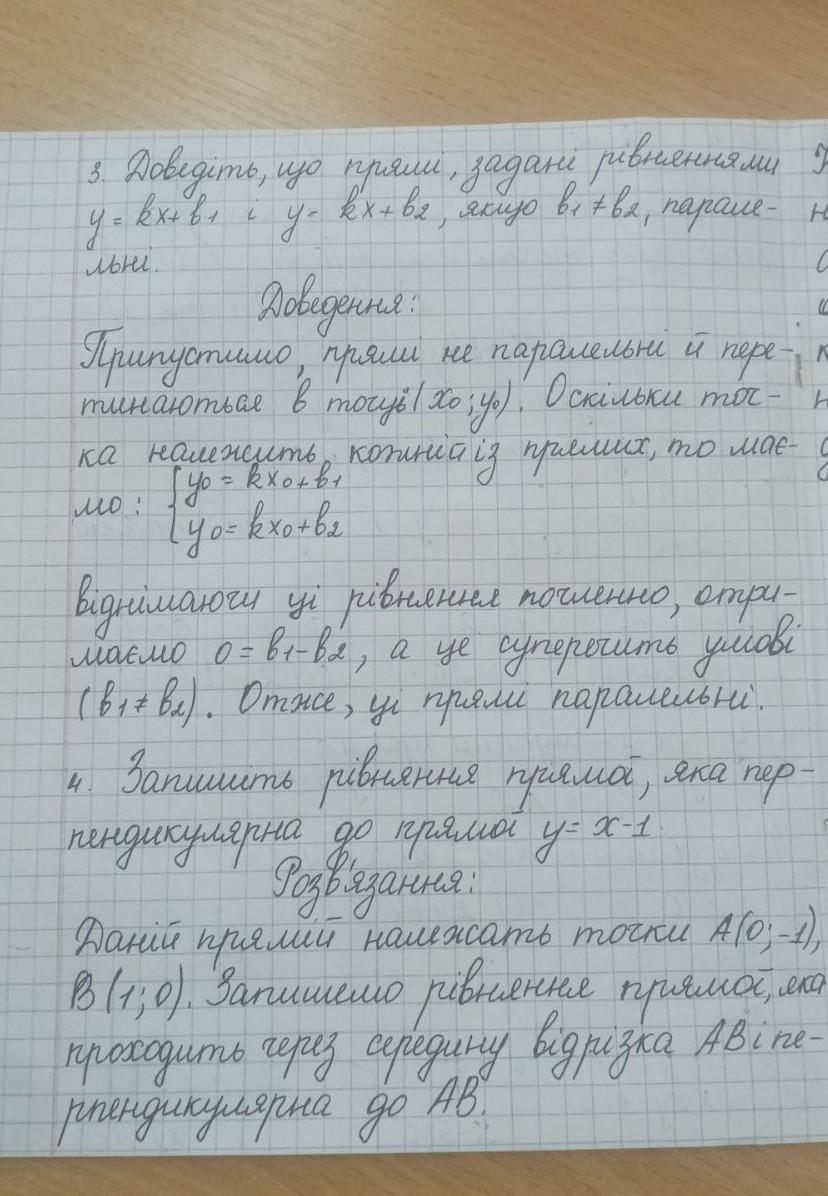 3. Доведіть, що прямі, задані рівняннями
y = kx+b1 і y = kx+b2, якщо b1≠b2, парале-
льні.
Доведення:
Припустимо, прямі не паралельні й пере-
тинаються в точці (x0; y0). Оскільки точ-
ка належить кожній із прямих, то має-
мо: { y0 = kx0+b1
y0 = kx0+b2
віднімаючи ці рівняння почленно, отри-
маємо 0 = b1-b2, а це суперечить умові
(b1≠b2). Отже, ці прямі паралельні.
4. Запишіть рівняння прямої, яка пер-
пендикулярна до прямої y = x-1.
Розв'язання:
Даній прямій належать точки A(0;-1),
B(1;0). Запишемо рівняння прямої, яка
проходить через середину відрізка AB і пе-
рпендикулярна до AB.